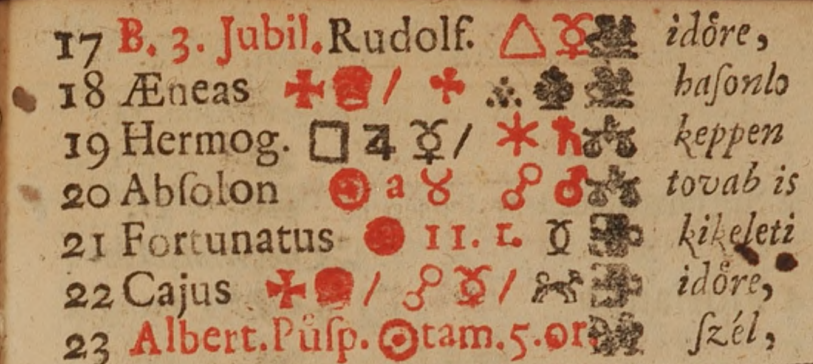 17 B. 3. Jubil. Rudolf. △ ☿ idoͤre,
18 Æneas ✠ / ✠ haſonlo
19 Hermog. □ ♃ ☿ / ✶ ♄ keppen
20 Abſolon ☉ a ♉ ☍ ♂ tovab is
21 Fortunatus 11. r. kikeleti
22 Cajus ✠ / ☍ ☿ / idoͤre,
23 Albert. Puͤſp. ☉tam. 5. or. ſzél,